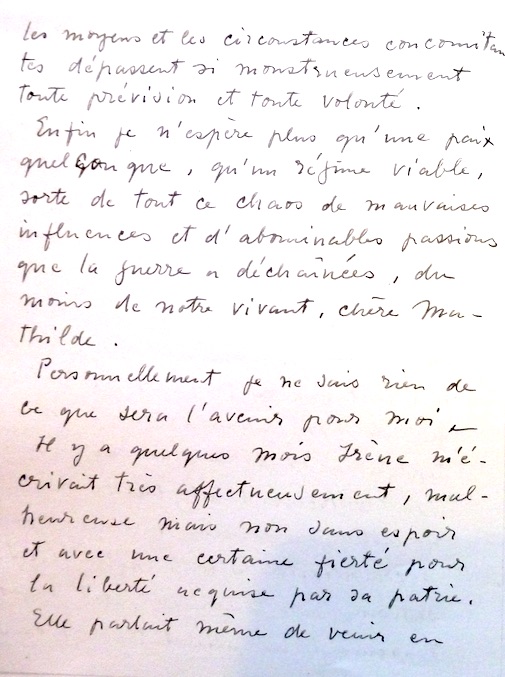 les moyens et les circonstances concomitan
tes dépassent si monstrueusement
toute prévision et toute volonté.
Enfin je n'espère plus qu'une paix
quelconque, qu'un régime viable,
sorte de tout ce chaos de mauvaises
influences et d'abominables passions
que la guerre a déchaînées, du
moins de notre vivant, chère Ma-
thilde.
Personnellement je ne sais rien de
ce que sera l'avenir pour moi –
Il y a quelques mois Irène m'é-
crivait très affectueusement, mal-
heureuse mais non sans espoir
et avec une certaine fierté pour
la liberté acquise par sa patrie.
Elle parlait même de venir en